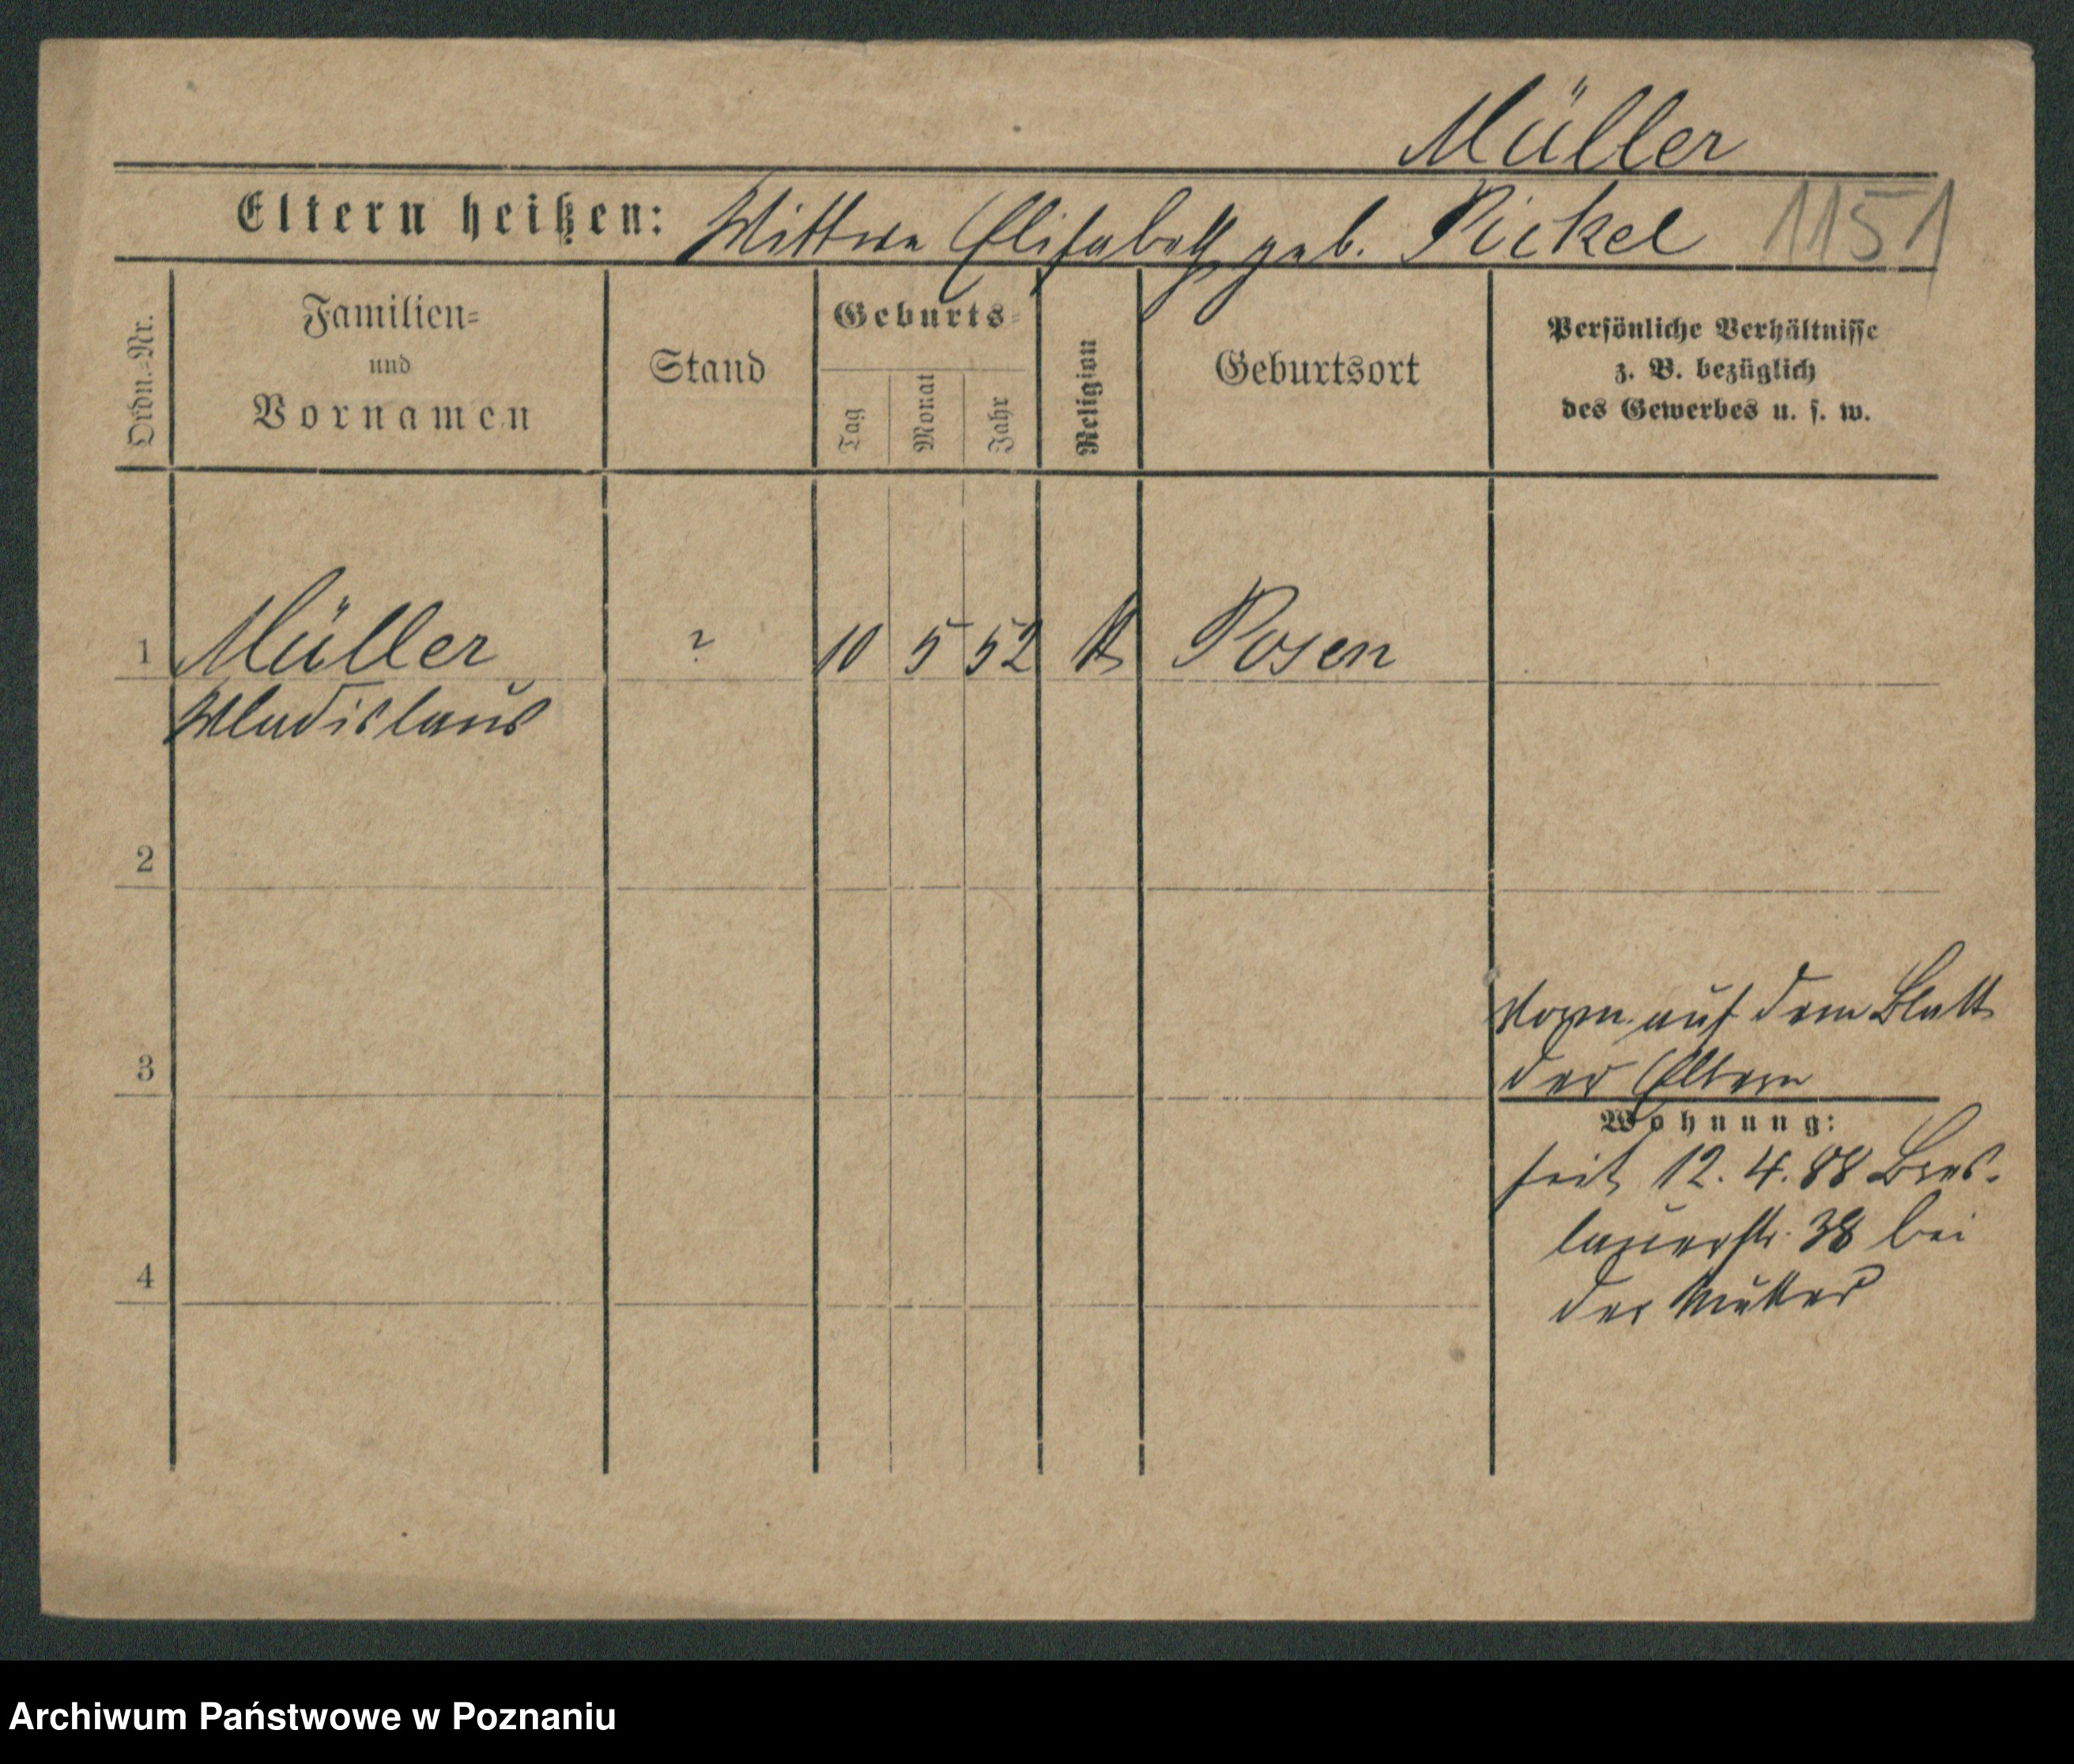 Müller
Eltern heißen: Wittwe Elisabeth geb. Pickel 1151
Ordn.-Nr.
Familien=
und
Vornamen
Stand
Geburts=
Tag
Monat
Jahr
Religion
Geburtsort
Persönliche Verhältnisse
z. B. bezüglich
des Gewerbes u. s. w.
1 Müller ? 10 5 52 K Posen
Wladislaus
2
3
4
auf dem Blatt
der Eltern
Wohnung:
seit 12. 4. 88 Bres-
lauerstr. 38 bei
der Mutter
Archiwum Państwowe w Poznaniu